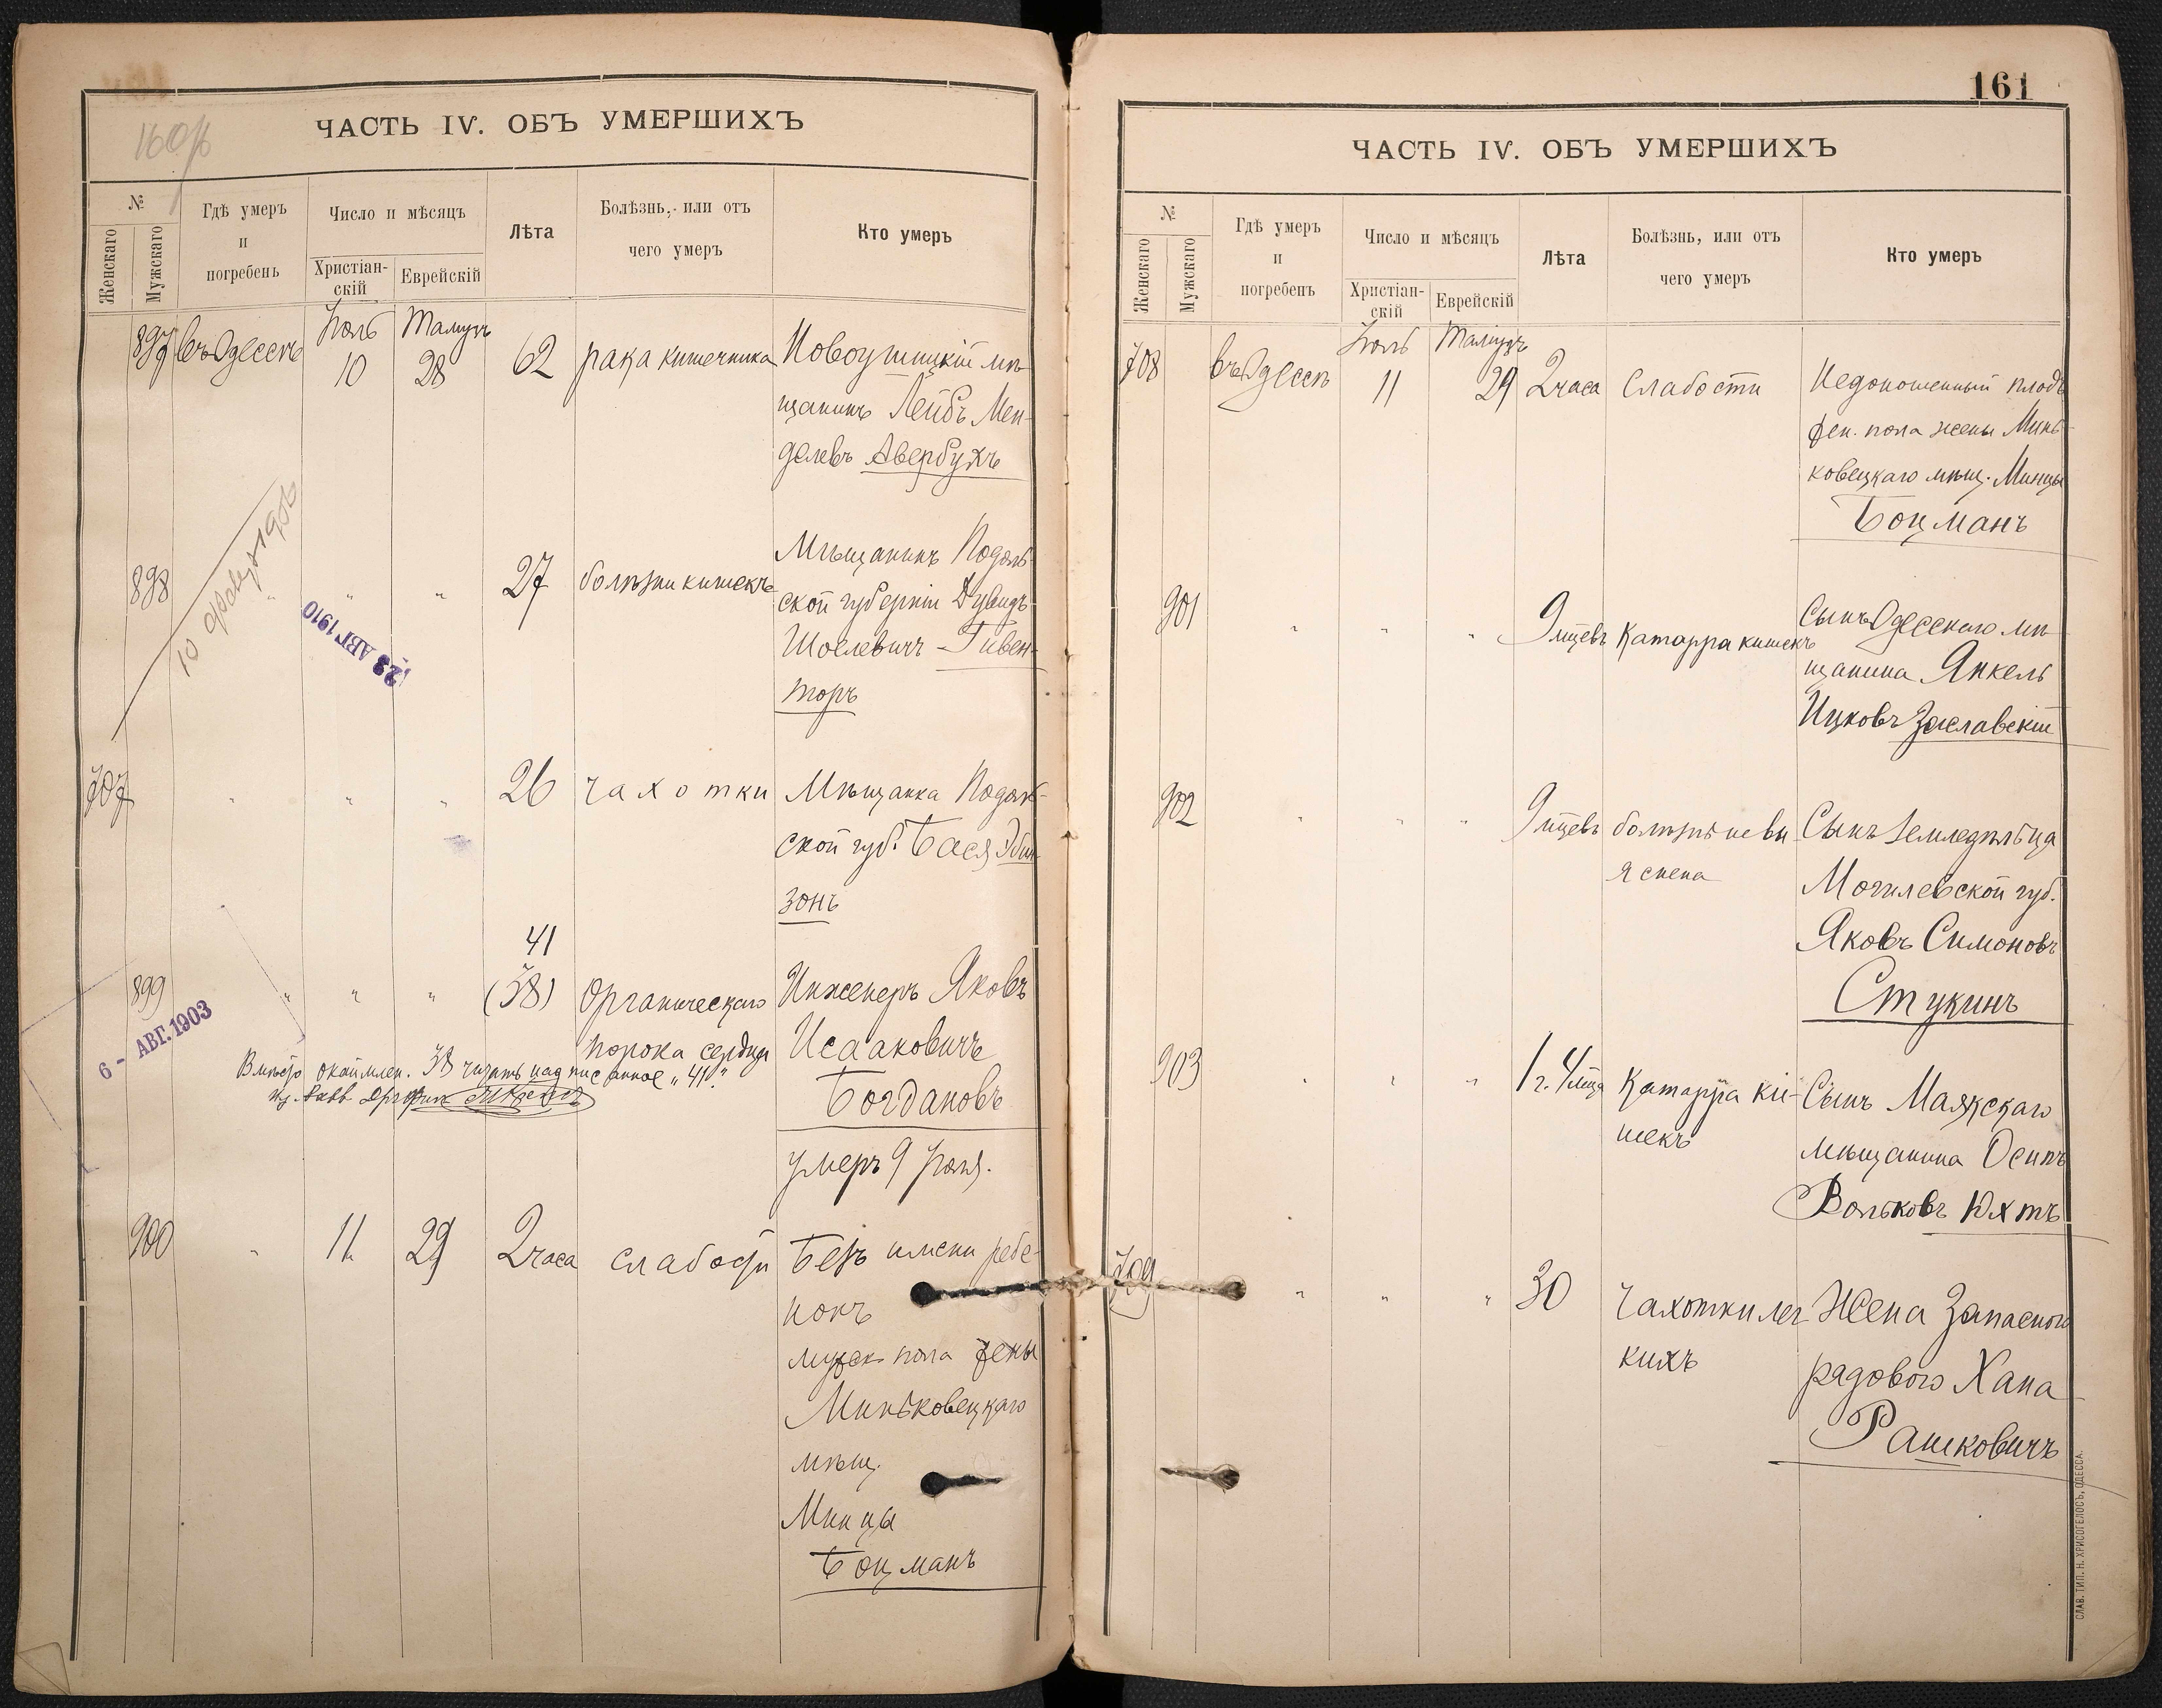 160/6
ЧАСТЬ IV. ОБЪ УМЕРШИХЪ
№
Женскаго
Мужскаго
Гдѣ умеръ
и
погребенъ
Число и мѣсяцъ
Христіан-
скій
Еврейскій
Лѣта
Болѣзнь, или отъ
чего умеръ
Кто умеръ
897
въ Одессѣ
Іюль
10
Тамузъ
28
62
рака кишечника
Новоушицкій мѣ-
щанинъ Лейбъ Мен-
делевъ Авербухъ
898
"
"
"
27
болѣзни кишекъ
Мѣщанинъ Подоль-
ской губерніи Дувидъ
Шоелевичъ Гивен-
торъ
23 АВГ 1910
707
"
"
"
26
чахотки
Мѣщанка Подоль-
ской губ. Бася Эбин-
зонъ
899
"
"
"
41
(38)
Органическаго
порока сердца
Инженеръ Яковъ
Исааковичъ
Богдановъ
умеръ 9 Іюля.
6 - АВГ. 1903
Вмѣсто окаймлен. 38 читать надписанное „41“.
900
"
11
29
2 часа
слабости
Безъ имени ребе-
нокъ
мужск пола жены
Миньковецкаго
мѣщ.
Минцы
Боцманъ
161
ЧАСТЬ IV. ОБЪ УМЕРШИХЪ
№
Женскаго
Мужскаго
Гдѣ умеръ
и
погребенъ
Число и мѣсяцъ
Христіан-
скій
Еврейскій
Лѣта
Болѣзнь, или отъ
чего умеръ
Кто умеръ
708
въ Одессѣ
Іюль
11
Тамузъ
29
2 часа
Слабости
Недоношенный плодъ
жен. пола жены Минь-
ковецкаго мѣщ. Минцы
Боцманъ
901
"
"
"
9 мцевъ
Катарра кишекъ
Сынъ Одесскаго мѣ-
щанина Янкель
Ицковъ Заславскій
902
"
"
"
9 мцевъ
болѣзнь не вы-
яснена
Сынъ Земледѣльца
Могилевской губ.
Яковъ Симоновъ
Стукинъ
903
"
"
"
1 г. 4 мца
Катарра ки-
шекъ
Сынъ Маякскаго
мѣщанина Осипъ
Вольковъ Юхтъ
709
"
"
"
30
Чахотки лег-
кихъ
Жена Запаснаго
рядового Хана
Рашковичъ
СЛАВ. ТИП. Н. ХРИСОГЕЛОСЪ, ОДЕССА.